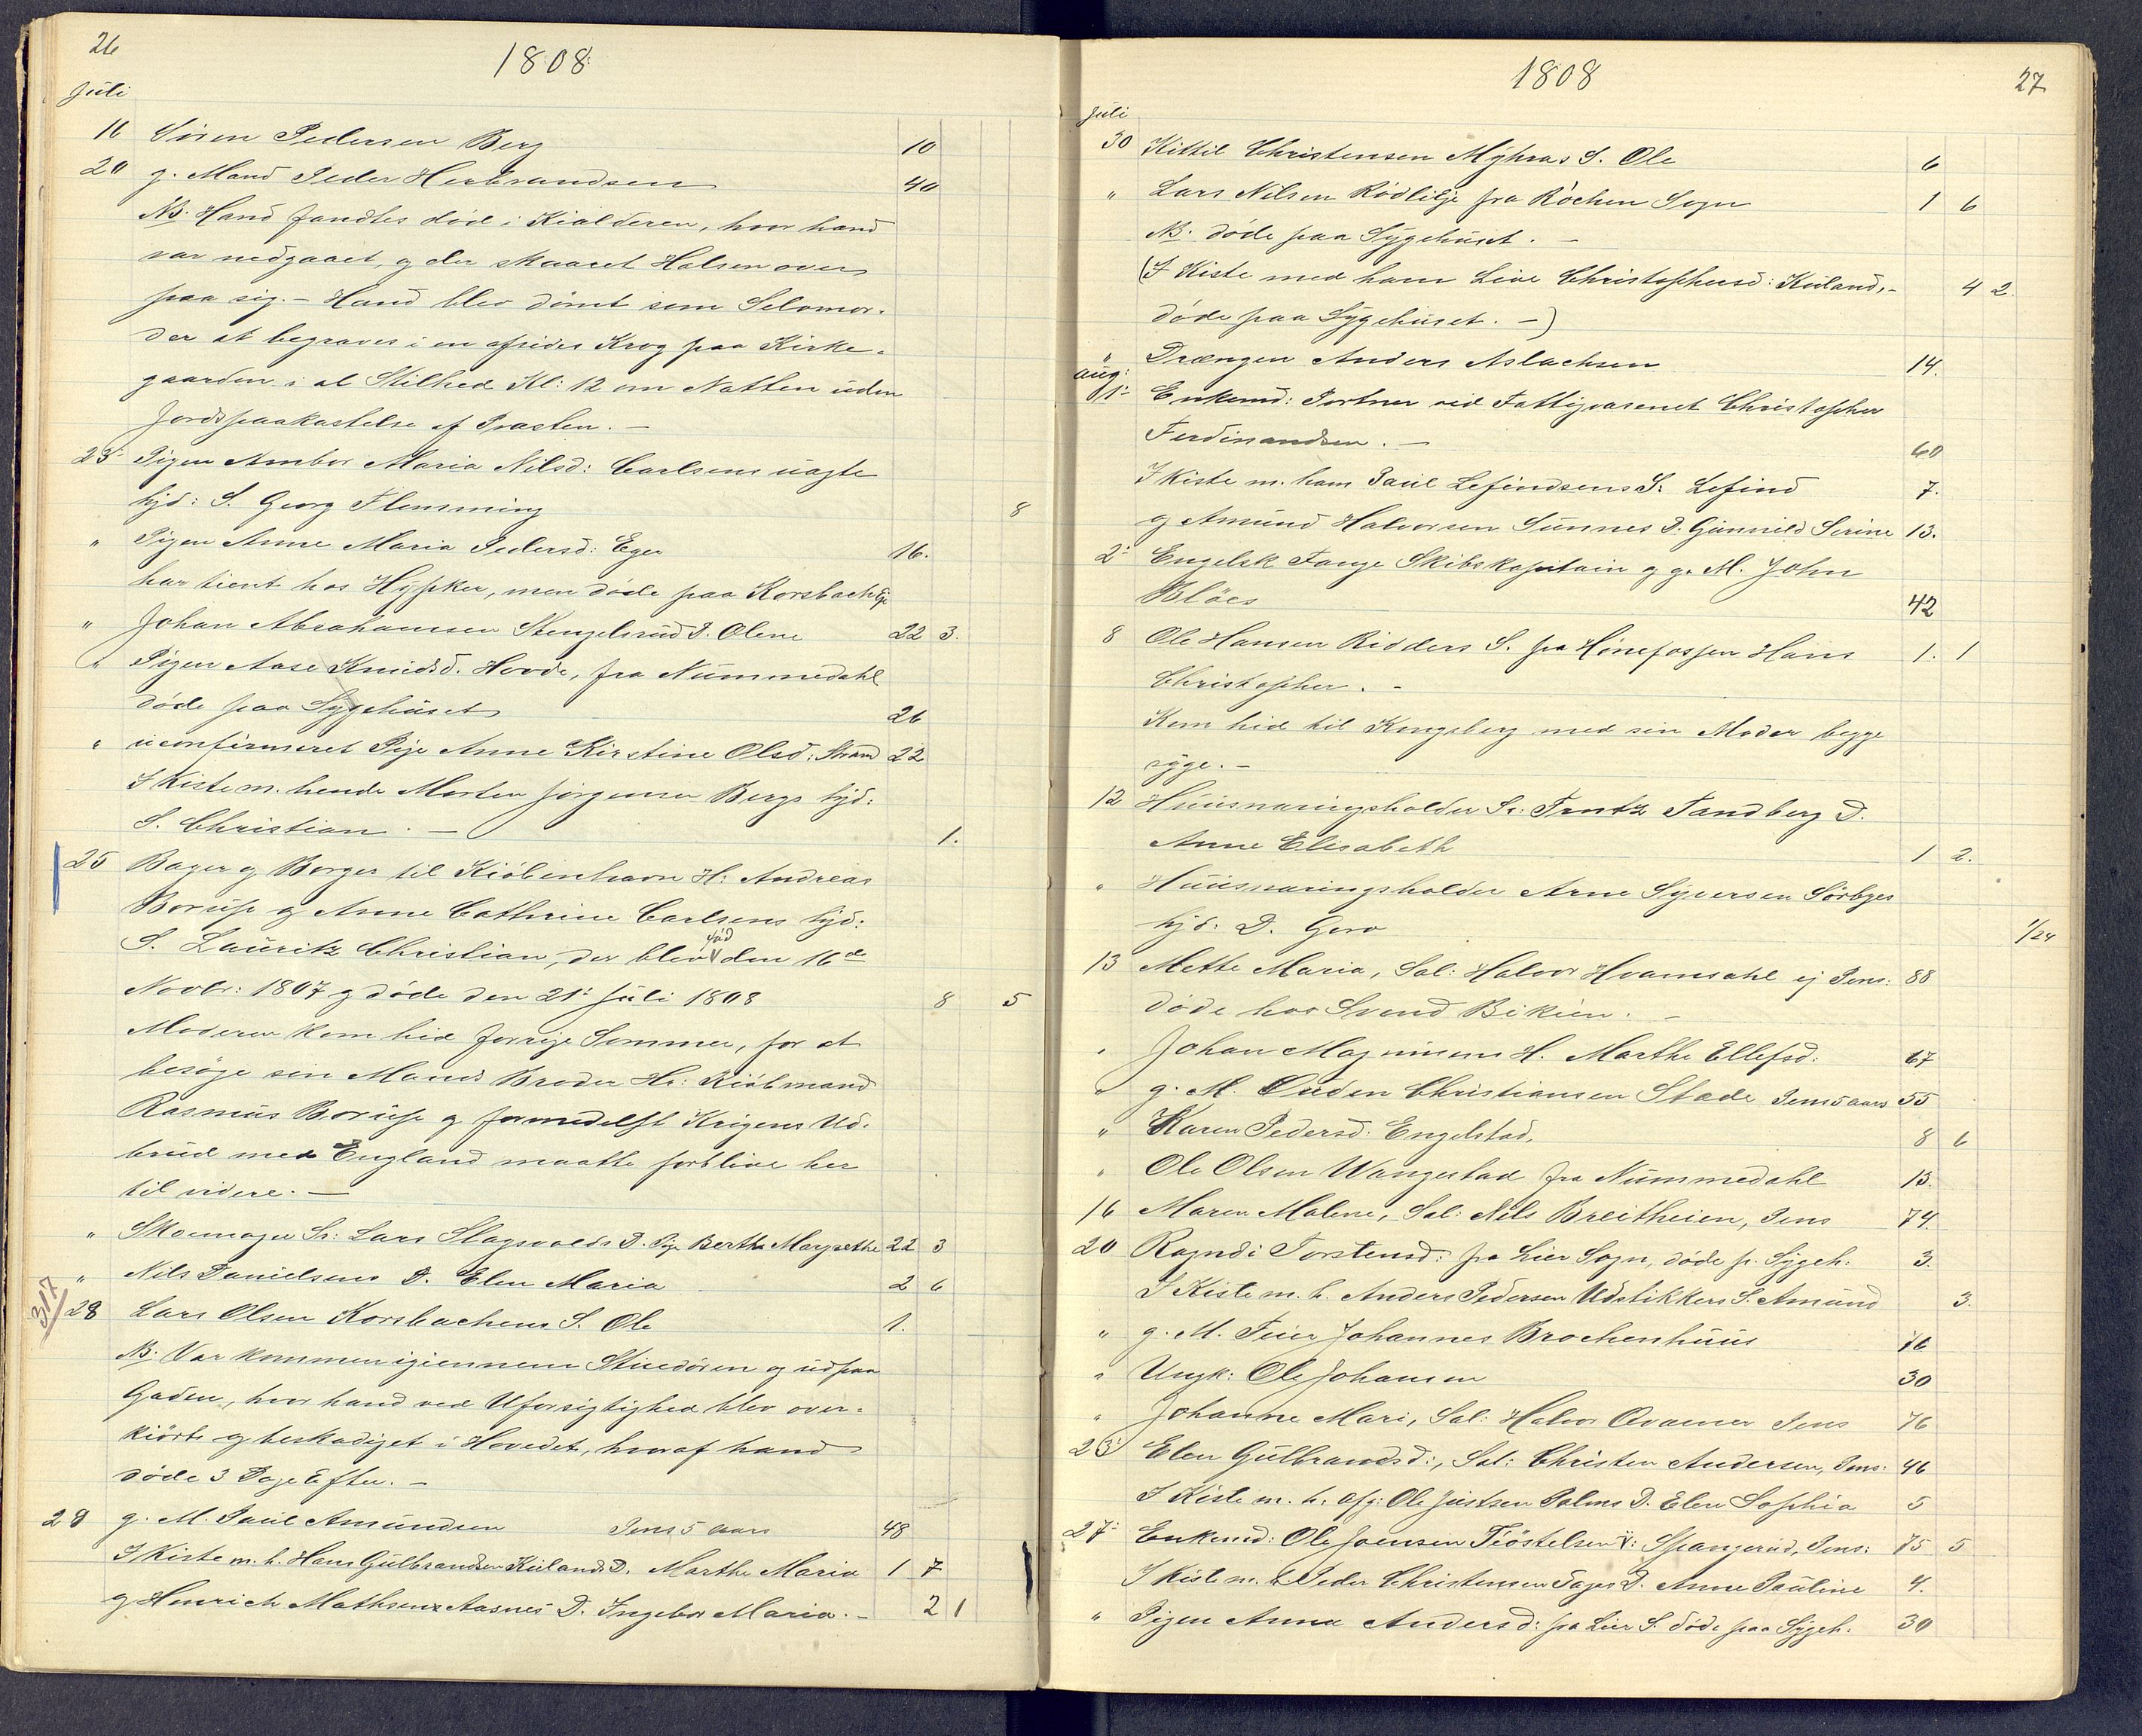 26
1808
Juli
16 Sören Pedersen Berg 10
20 g. Mand Peder Herbrandsen 40
NB. Hand fandtes död i Kialderen, hvor hand
var nedgaaet, og der skaaret Halsen over
paa sig. – Hand blev dömt som Selvmor-
der at begraves i en afsides Krog paa Kirke-
gaarden i al Stilhed Kl: 12 om Natten uden
Jordspaakastelse af Præsten. –
23 Pigen Ambor Maria Nilsd: Carlsens uægte
hjd: S. Georg Flemming 8
" Pigen Anne Maria Pedersd: Eger 16.
har tient hos Hÿpker, men döde paa Korsbach Eje
" Johan Abrahamsen Stengelsrud D. Olene 22 3.
" Pigen Aase Knudsd. Hovde, fra Nummedahl
döde paa Sygehuset 26
" uconfirmeret Pige Anne Kirstine Olsd: Strand 22
I Kiste m. hende Morten Jörgensen Bergs hjd:
S. Christian. – 1.
25 Bager og Borger til Kiöbenhavn H: Andreas
Borup og Anne Cathrine Carlsens hjd:
S. Lauritz Christian, der blev föd den 16de
Novbr: 1807 og döde den 21: Juli 1808 8 5
Moderen kom hid forrige Sommer, for at
besöge sin Mands Broder Hr: Kiöbmand
Rasmus Borup og formedelst Krigens Ud-
brud med England maatte forblive her
til videre. –
" Skomager Sr: Lars Slagsvolds D. Pige Berthe Margrethe 22 3
" Nils Danielsens D. Elen Maria 2 6
317
28 Lars Olsen Korsbachens S. Ole 1.
NB. Var kommen igiennem Stuedören og ud paa
Gaden, hvor hand ved Uforsigtighed blev over-
kiört og beskadiget i Hovedet, hvoraf hand
döde 3 Dage Efter. –
28 g. M. Paul Amundsen Pens 5 aars 48
I Kiste m. h. Hans Gulbrandsen Kiilands D. Marthe Maria 1 7
og Henrich Mathsens Aasnes D. Ingebor Maria. – 2 1
1808
27
Juli
30 Kittil Christensen Myhras S. Ole 6
" Lars Nilsen Rödlilje fra Röchen Sogn 1 6
NB. döde paa Sygehuset. –
(I Kiste med ham Live Christophersd: Kiiland, – 4 2.
döde paa Sygehuset. –)
" Drængen Anders Aslachsen 14.
Aug:
1 Enkemd: Portner ved Fattigvæsenet Christopher
Ferdinandsen. – 60
I Kiste m. ham Paul Lefindsens S. Lefind 7.
og Amund Halvorsen Sunnes D. Gunnild Serine 13.
2 Engelsk Fange Skibskaptain og g. M. John
Bläcs 42
8 Ole Hansen Ridders S. fra Hönefossen Hans 1. 1
Christopher. –
Kom hid til Kongsberg med sin Moder begge
syge. –
12 Huusnæringsholder Sr. Frntz Sandberg D.
Anne Elisabeth 1 2.
" Huusnæringsholder Arne Syversen Sörbyes
hjd: D. Gero 1/24
13 Mette Maria, Sal: Halvor Hvamsahl ej Pens: 88
döde hos Svend Bikien. –
" Johan Magnusens H. Marthe Ellefsd: 67
" g. M. Ouden Christiansen Stade Pens 5 aars 55
" Karen Pedersd: Engelstad, 8 6
" Ole Olsen Wangestad fra Nummedahl 13.
16 Maren Malene, Sal: Nils Breitheien, Pens 74.
20 Ragndi Torstensd: fra Lier Sogn, döde p. Sygeh: 3.
I Kiste m. h. Anders Pedersen Udstikkers S. Amund 3.
" g. M. Feier Johannes Brochenhuus 76
" Ungk: Ole Johansen 30
" Johanne Mari, Sal: Halvor Qvamer Pens 76
23 Elen Gulbrandsd:, Sal: Christen Andersen, Pens: 46
I Kiste m. h. Afg: Ole Justsen Palms D. Elen Sophia 5
27 Enkemd: Ole Joensen Tiöstelsen v: Spangerud, Pens: 75 5
I Kiste m. h. Peder Christensen Tages D. Anne Pauline 4.
" Pigen Anna Andersd: fra Lier S. döde paa Sygeh. 30